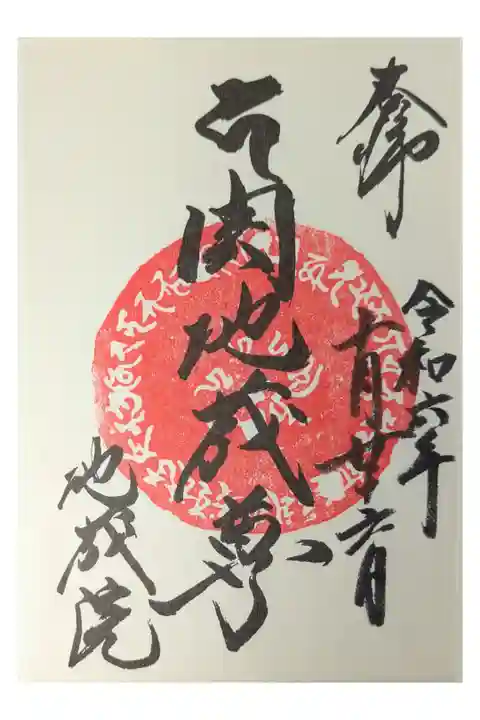 奉拝
令和六年
十月廿六日
関地蔵尊
地蔵院